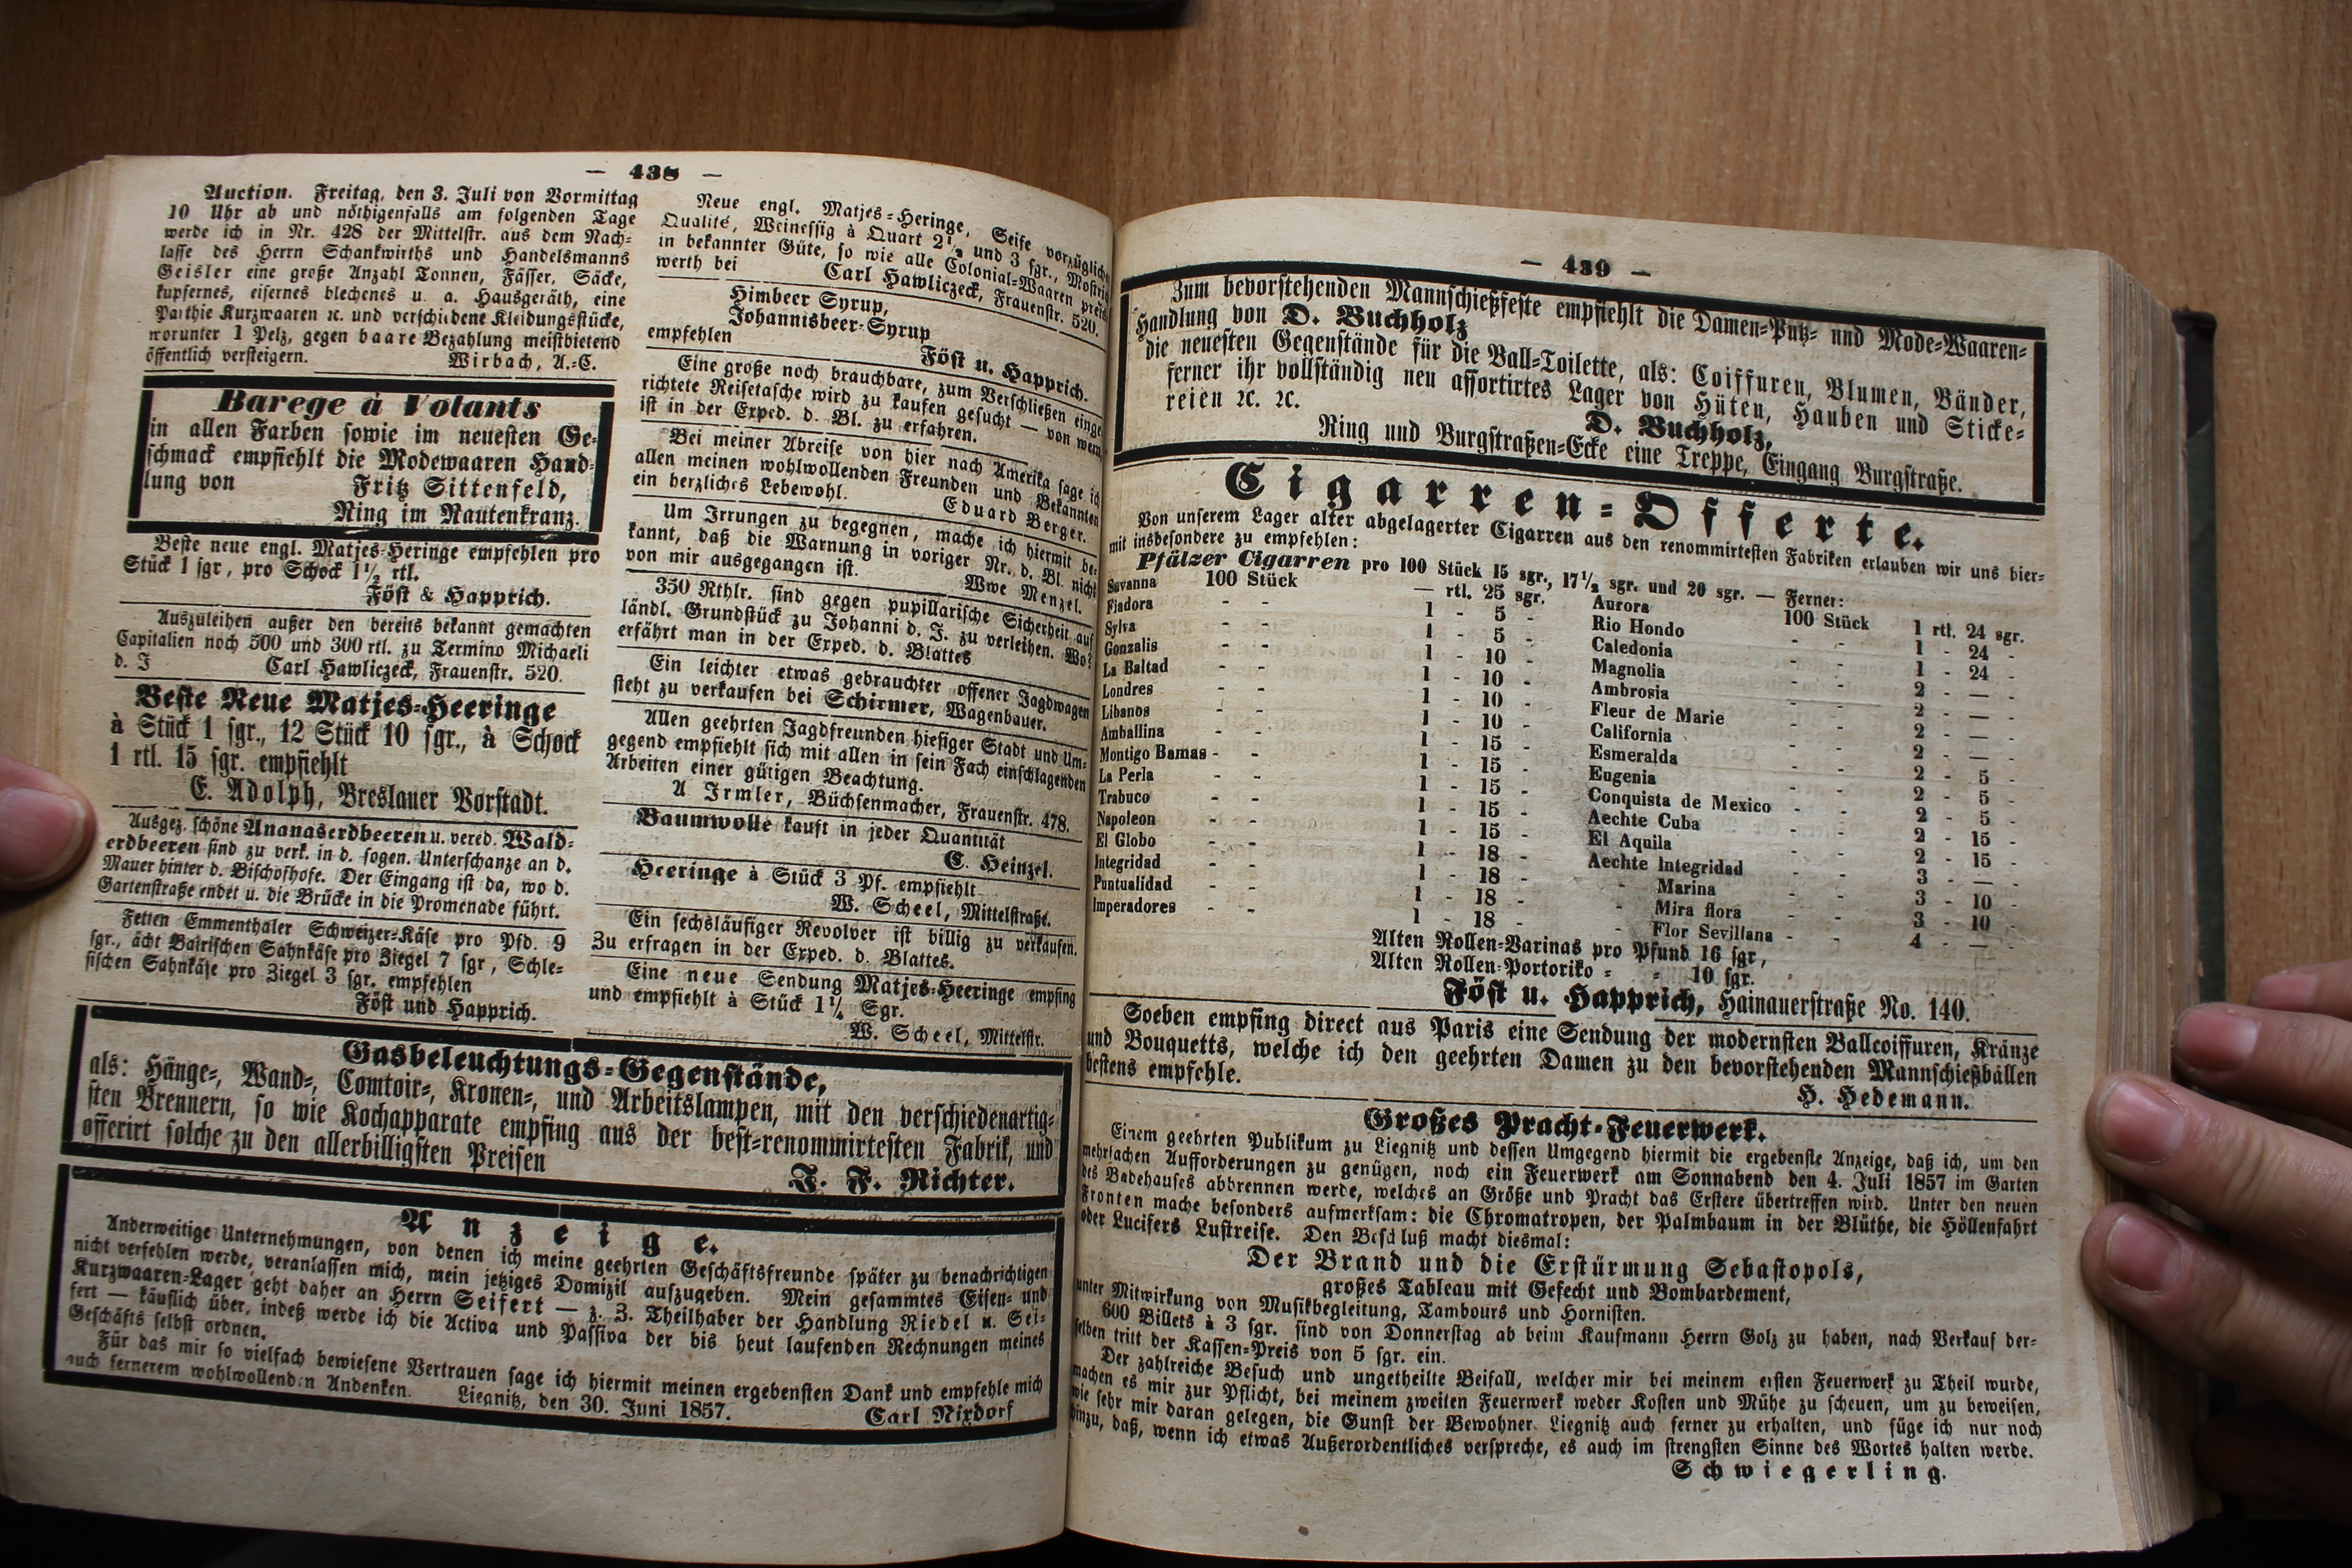 — 438 —
Auction. Freitag, den 3. Juli von Vormittag
10 Uhr ab und nöthigenfalls am folgenden Tage
werde ich in Nr. 428 der Mittelstr. aus dem Nach-
lasse des Herrn Schankwirths und Handelsmanns
Geisler eine große Anzahl Tonnen, Fässer, Säcke,
kupfernes, eisernes blechenes u. a. Hausgeräth, eine
Parthie Kurzwaaren ꝛc. und verschiedene Kleidungsstücke,
worunter 1 Pelz, gegen baare Bezahlung meistbietend
öffentlich versteigern. Wirbach, A.-C.
Barege à Volants
in allen Farben sowie im neuesten Ge-
schmack empfiehlt die Modewaaren Hand-
lung von Fritz Sittenfeld,
Ring im Rautenkranz.
Beste neue engl. Matjes-Heringe empfehlen pro
Stück 1 sgr, pro Schock 1½ rtl.
Föst & Happrich.
Auszuleihen außer den bereits bekannt gemachten
Capitalien noch 500 und 300 rtl. zu Termino Michaeli
d. J Carl Hawliczeck, Frauenstr. 520.
Beste Neue Matjes-Heeringe
à Stück 1 sgr., 12 Stück 10 sgr., à Schock
1 rtl. 15 sgr. empfiehlt
E. Adolph, Breslauer Vorstadt.
Ausgez. schöne Ananaserdbeeren u. vered. Wald-
erdbeeren sind zu verk. in d. sogen. Unterschanze an d.
Mauer hinter d. Bischofhofe. Der Eingang ist da, wo d.
Gartenstraße endet u. die Brücke in die Promenade führt.
Fetten Emmenthaler Schweizer-Käse pro Pfd. 9
sgr., ächt Bairischen Sahnkäse pro Ziegel 7 sgr, Schle-
sischen Sahnkäse pro Ziegel 3 sgr. empfehlen
Föst und Happrich.
Neue engl. Matjes-Heringe, Seife vorzüglich
Qualité, Weinessig à Quart 2½ und 3 sgr., Mostrig
in bekannter Güte, so wie alle Colonial-Waaren preis
werth bei Carl Hawliczeck, Frauenstr. 520.
Himbeer Syrup,
Johannisbeer-Syrup
empfehlen Föst u. Happrich.
Eine große noch brauchbare, zum Verschließen einge
richtete Reisetasche wird zu kaufen gesucht — von wem
ist in der Exped. d. Bl. zu erfahren.
Bei meiner Abreise von hier nach Amerika sage ich
allen meinen wohlwollenden Freunden und Bekannten
ein herzliches Lebewohl. Eduard Berger.
Um Irrungen zu begegnen, mache ich hiermit be-
kannt, daß die Warnung in voriger Nr. d. Bl. nicht
von mir ausgegangen ist. Wwe Menzel.
350 Rthlr. sind gegen pupillarische Sicherheit auf
ländl. Grundstück zu Johanni d. J. zu verleihen. Wo?
erfährt man in der Exped. d. Blattes
Ein leichter etwas gebrauchter offener Jagdwagen
steht zu verkaufen bei Schirmer, Wagenbauer.
Allen geehrten Jagdfreunden hiesiger Stadt und Um-
gegend empfiehlt sich mit allen in sein Fach einschlagenden
Arbeiten einer gütigen Beachtung.
A Irmler, Büchsenmacher, Frauenstr. 478.
Baumwolle kauft in jeder Quantität
C. Heinzel.
Heeringe à Stück 3 Pf. empfiehlt
W. Scheel, Mittelstraße.
Ein sechsläufiger Revolver ist billig zu verkaufen.
Zu erfragen in der Exped. d. Blattes.
Eine neue Sendung Matjes-Heeringe empfing
und empfiehlt à Stück 1¼ Sgr.
W. Scheel, Mittelstr.
Gasbeleuchtungs-Gegenstände,
als: Hänge-, Wand-, Comtoir-, Kronen-, und Arbeitslampen, mit den verschiedenartig-
sten Brennern, so wie Kochapparate empfing aus der best-renommirtesten Fabrik, und
offerirt solche zu den allerbilligsten Preisen
J. F. Richter.
Anzeige.
Anderweitige Unternehmungen, von denen ich meine geehrten Geschäftsfreunde später zu benachrichtigen
nicht verfehlen werde, veranlassen mich, mein jetziges Domizil aufzugeben. Mein gesammtes Eisen- und
Kurzwaaren-Lager geht daher an Herrn Seifert — z. Z. Theilhaber der Handlung Riedel u. Sei-
fert — käuflich über, indeß werde ich die Activa und Passiva der bis heut laufenden Rechnungen meines
Geschäfts selbst ordnen.
Für das mir so vielfach bewiesene Vertrauen sage ich hiermit meinen ergebensten Dank und empfehle mich
auch fernerem wohlwollenden Andenken. Liegnitz, den 30. Juni 1857. Carl Nixdorf
— 439 —
Zum bevorstehenden Mannschießfeste empfiehlt die Damen-Putz- und Mode-Waaren-
Handlung von D. Buchholz
die neuesten Gegenstände für die Ball-Toilette, als: Coiffuren, Blumen, Bänder,
ferner ihr vollständig neu assortirtes Lager von Hüten, Hauben und Sticke-
reien ꝛc. ꝛc. D. Buchholz,
Ring und Burgstraßen-Ecke eine Treppe, Eingang Burgstraße.
Cigarren-Offerte.
Von unserem Lager alter abgelagerter Cigarren aus den renommirtesten Fabriken erlauben wir uns hier-
mit insbesondere zu empfehlen:
Pfälzer Cigarren pro 100 Stück 15 sgr., 17½ sgr. und 20 sgr. — Ferner:
Savanna 100 Stück — rtl. 25 sgr.
Fiadora - - 1 - 5 -
Sylva - - 1 - 5 -
Gonzalis - - 1 - 10 -
La Baltad - - 1 - 10 -
Londres - - 1 - 10 -
Libanos - - 1 - 10 -
Amballina - - 1 - 15 -
Montigo Bamas - - 1 - 15 -
La Perla - - 1 - 15 -
Trabuco - - 1 - 15 -
Napoleon - - 1 - 15 -
El Globo - - 1 - 18 -
Integridad - - 1 - 18 -
Puntualidad - - 1 - 18 -
Imperadores - - 1 - 18 -
Aurora 100 Stück 1 rtl. 24 sgr.
Rio Hondo - - 1 - 24 -
Caledonia - - 1 - 24 -
Magnolia - - 2 - — -
Ambrosia - - 2 - — -
Fleur de Marie - - 2 - — -
California - - 2 - — -
Esmeralda - - 2 - 5 -
Eugenia - - 2 - 5 -
Conquista de Mexico - - 2 - 5 -
Aechte Cuba - - 2 - 15 -
El Aquila - - 2 - 15 -
Aechte Integridad - - 3 - — -
- Marina - - 3 - 10 -
- Mira flora - - 3 - 10 -
- Flor Sevillana - - 4 - — -
Alten Rollen-Varinas pro Pfund 16 sgr,
Alten Rollen-Portoriko = = 10 sgr.
Föst u. Happrich, Hainauerstraße No. 140.
Soeben empfing direct aus Paris eine Sendung der modernsten Ballcoiffuren, Kränze
und Bouquetts, welche ich den geehrten Damen zu den bevorstehenden Mannschießbällen
bestens empfehle. H. Hedemann.
Großes Pracht-Feuerwerk.
Einem geehrten Publikum zu Liegnitz und dessen Umgegend hiermit die ergebenste Anzeige, daß ich, um den
mehrfachen Aufforderungen zu genügen, noch ein Feuerwerk am Sonnabend den 4. Juli 1857 im Garten
des Badehauses abbrennen werde, welches an Größe und Pracht das Erstere übertreffen wird. Unter den neuen
Fronten mache besonders aufmerksam: die Chromatropen, der Palmbaum in der Blüthe, die Höllenfahrt
oder Lucifers Lustreise. Den Beschluß macht diesmal:
Der Brand und die Erstürmung Sebastopols,
großes Tableau mit Gefecht und Bombardement,
unter Mitwirkung von Musikbegleitung, Tambours und Hornisten.
600 Billets à 3 sgr. sind von Donnerstag ab beim Kaufmann Herrn Golz zu haben, nach Verkauf der-
selben tritt der Kassen-Preis von 5 sgr. ein.
Der zahlreiche Besuch und ungetheilte Beifall, welcher mir bei meinem ersten Feuerwerk zu Theil wurde,
machen es mir zur Pflicht, bei meinem zweiten Feuerwerk weder Kosten und Mühe zu scheuen, um zu beweisen,
wie sehr mir daran gelegen, die Gunst der Bewohner Liegnitz auch ferner zu erhalten, und füge ich nur noch
hinzu, daß, wenn ich etwas Außerordentliches verspreche, es auch im strengsten Sinne des Wortes halten werde.
Schwiegerling.